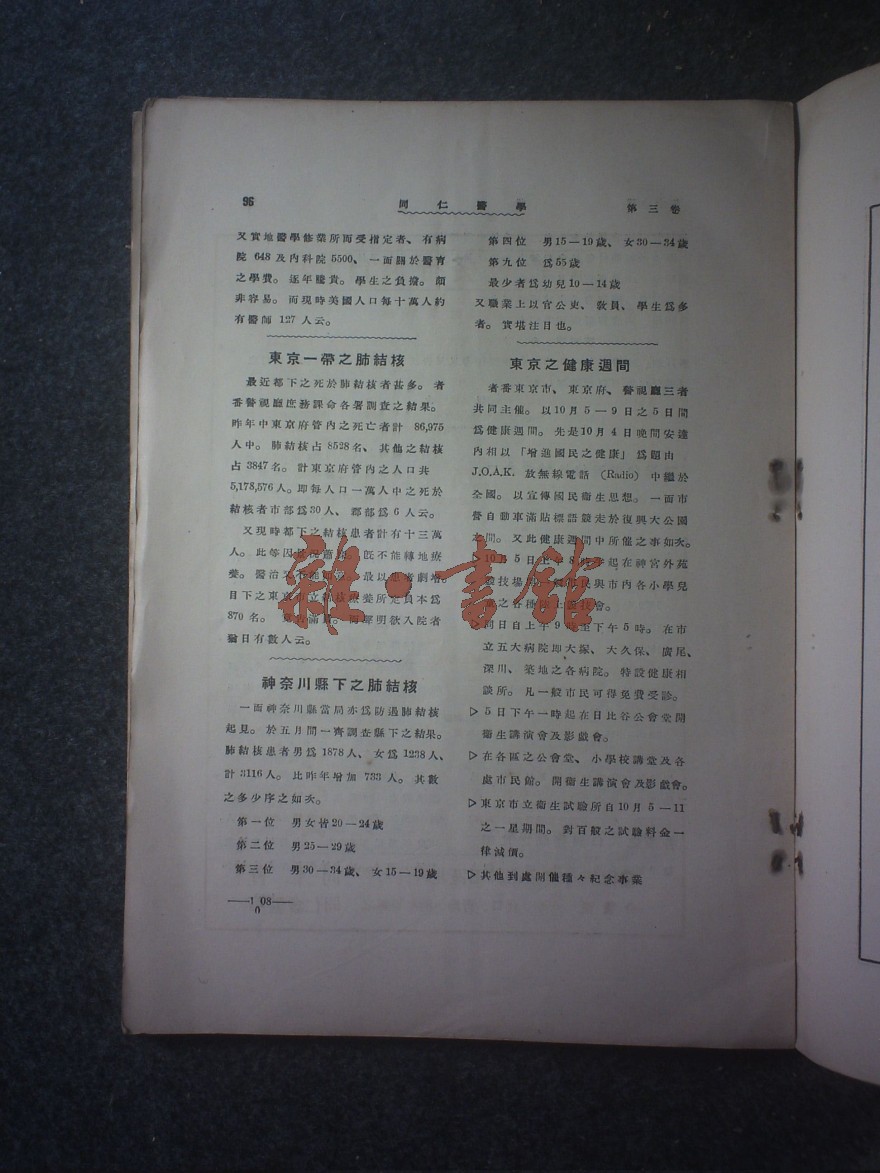 96
同仁醫學
第三卷
又實地醫學修業所而受指定者、有病
院 648 及內科院 5500、一面關於醫育
之學費。逐年騰貴。學生之負擔。頗
非容易。而現時美國人口每十萬人約
有醫師 127 人云。
東京一帶之肺結核
最近都下之死於肺結核者甚多。者
番警視廳庶務課命各署調查之結果。
昨年中東京府管內之死亡者計 86,975
人中。肺結核占 8528名、其他之結核
占 3847名。計東京府管內之人口共
5,178,576人。即每人口一萬人中之死於
結核者市部爲30人、郡部爲6人云。
又現時都下之結核患者計有十三萬
人。此等因 旣不能轉地療
養。醫治又不能 最以患者劇增。
目下之東京市立結核療養所定員本爲
870 名。 滿員。 聲明欲入院者
日有數人云。
神奈川縣下之肺結核
一面神奈川縣當局亦爲防遏肺結核
起見。於五月間一齊調查縣下之結果。
肺結核患者男爲1878人、女爲1238人、
計 3116人。比昨年增加 733 人。其數
之多少序之如次。
第一位 男女皆20—24歲
第二位 男25—29歲
第三位 男30—34歲、女15—19歲
—1008—
第四位 男15—19歲、女30—34歲
第九位 爲55歲
最少者爲幼兒10—14歲
又職業上以官公吏、敎員、學生爲多
者。實堪注目也。
東京之健康週間
者番東京市、東京府、警視廳三者
共同主催。以10月5—9日之5日間
爲健康週間。先是10月4日晚間安達
內相以「增進國民之健康」爲題由
J.O.A.K. 放無線電話 (Radio) 中繼於
全國。以宣傳國民衞生思想。一面市
營自動車滿貼標語競走於復興大公園
之間。又此健康週間中所催之事如次。
▷10月5日上午8時起在神宮外苑
競技場 一般市民與市內各小學兒
童之各種陸上競技會。
同日自上午9時至下午5時。在市
立五大病院即大塚、大久保、廣尾、
深川、築地之各病院。特設健康相
談所。凡一般市民可得免費受診。
▷5日下午一時起在日比谷公會堂開
衞生講演會及影戲會。
▷在各區之公會堂、小學校講堂及各
處市民館。開衞生講演會及影戲會。
▷東京市立衞生試驗所自10月5—11
之一星期間。對百般之試驗料金一
律減價。
▷其他到處開催種々紀念事業
雜·書館